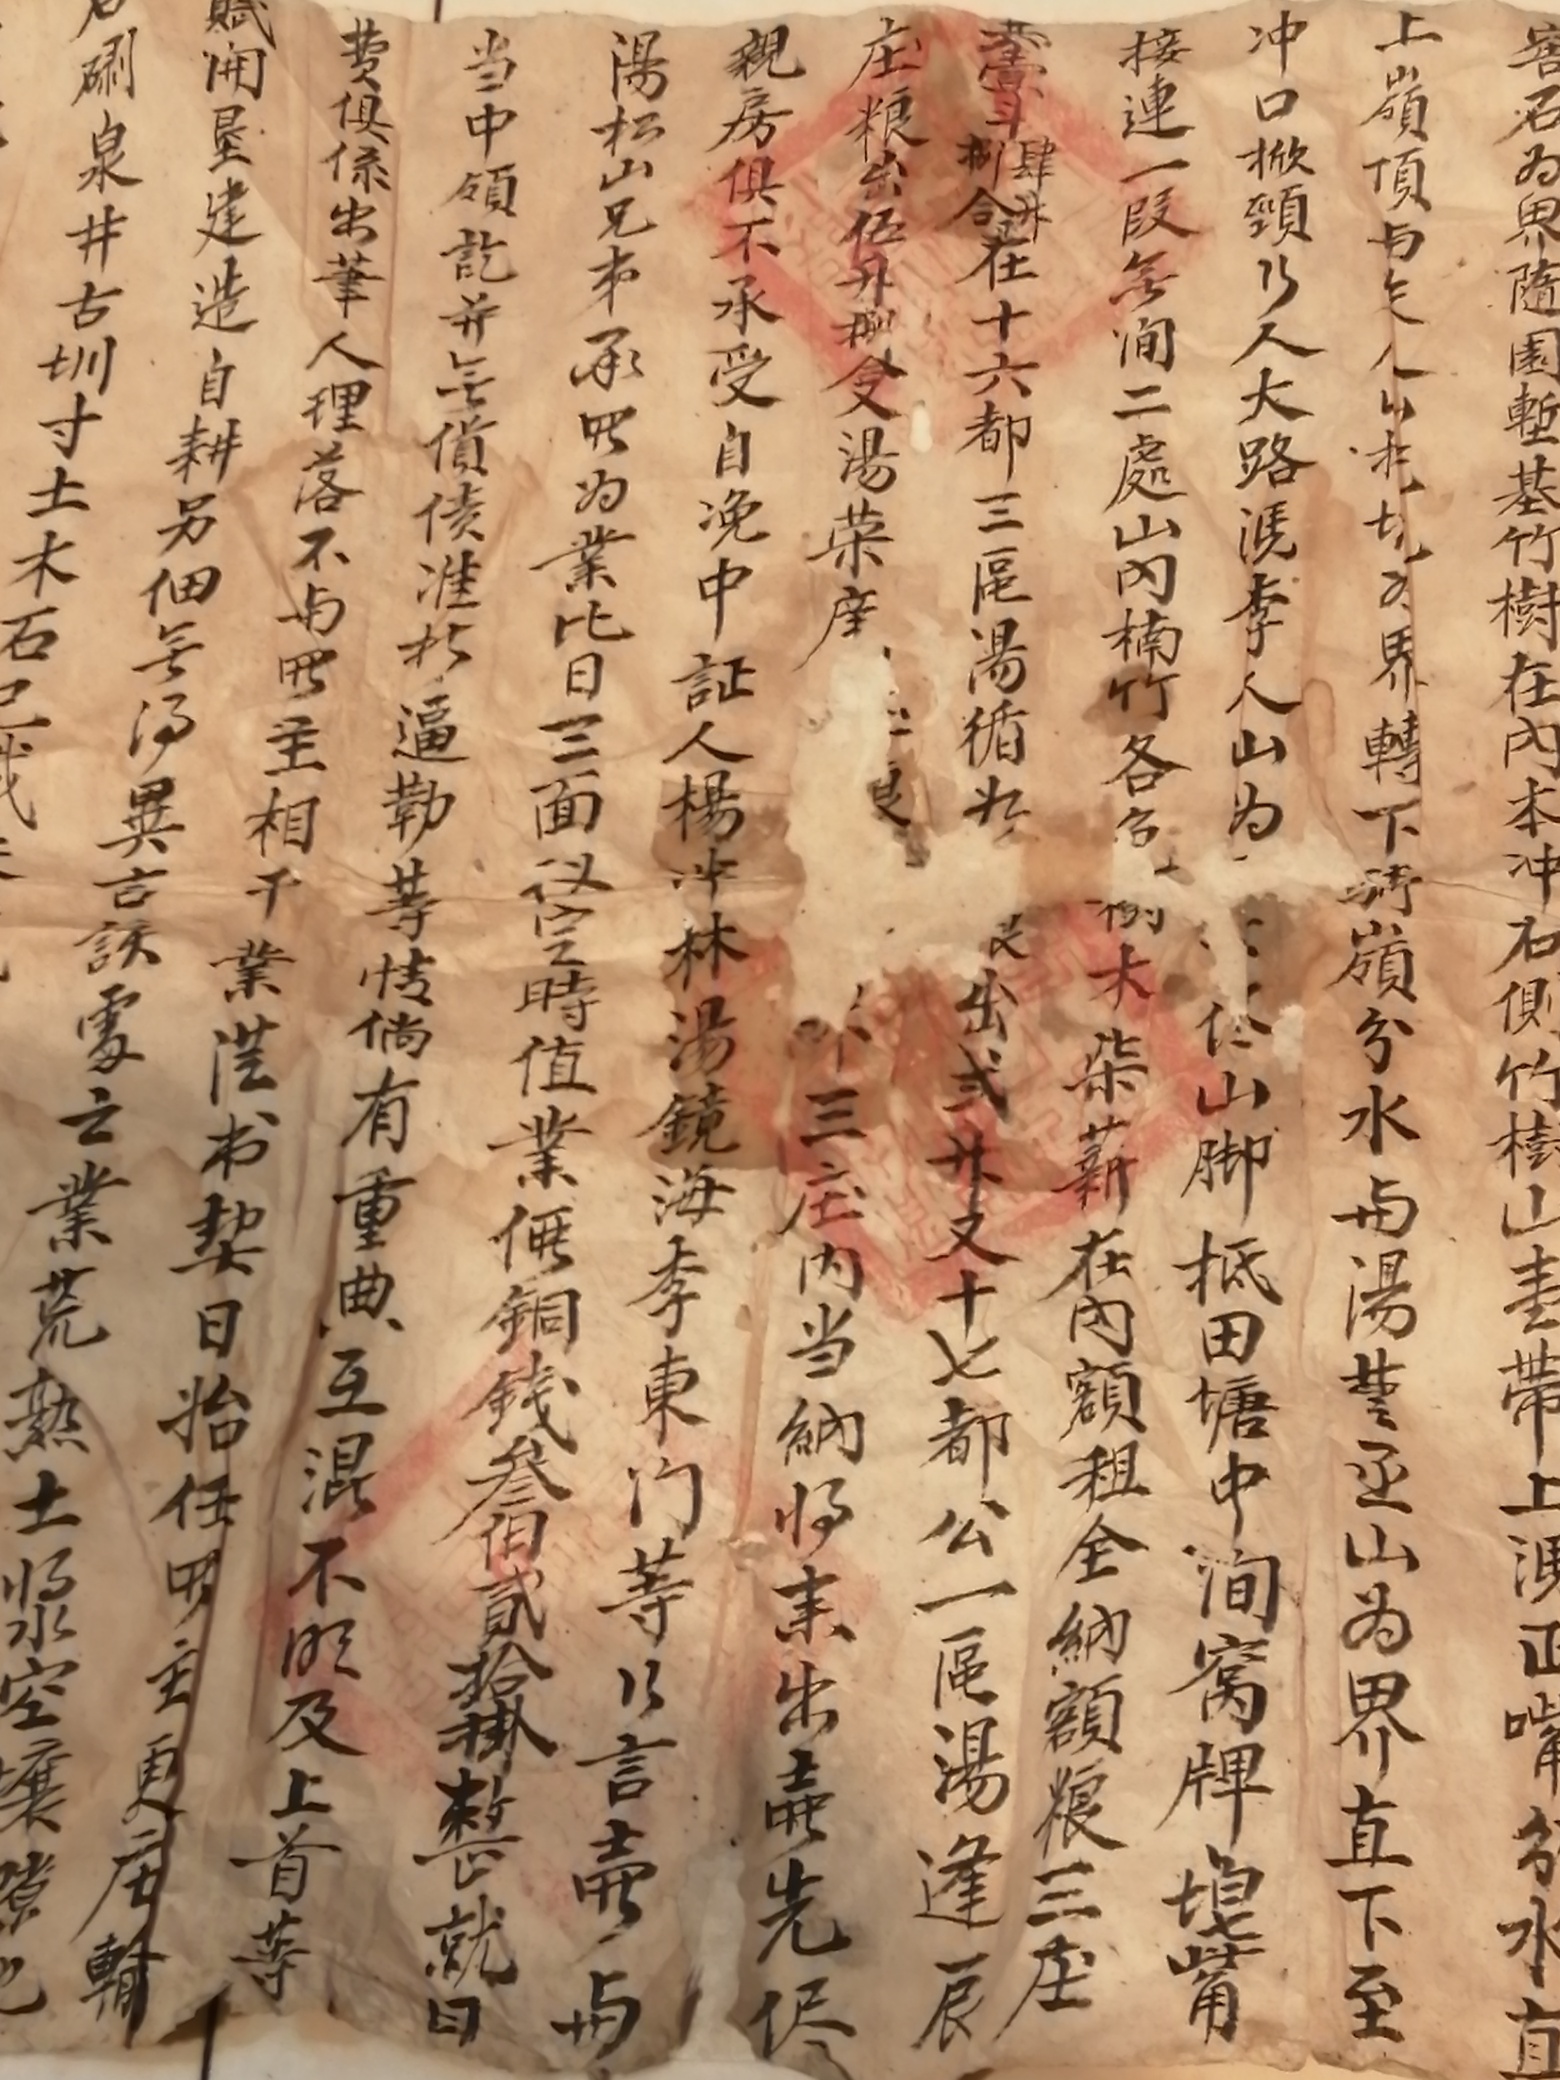 窖石为界隨園塹基竹樹在內本冲石側竹樹山圭帶上涜正嘴分水直
上嶺頂与人山為界轉下騎嶺分水与湯丕山為界直下至
冲口掀頸以人大路涜李人山为伩山脚抵田塘中涧窝牌嘴
接連一段无涧二處山內楠竹各色樹木柴薪在內額租全納額粮三庄
壹斗肆升捌合在十六都三區湯循出弍升又十七都公一區湯逢辰
庄粮出伍升捌合又湯荣三庄内当納将来出賣先侭
親房俱不承受自浼中証人楊冲林湯鏡海李東门等以言賣与
湯松山兄弟承買为業比日三面议定時值業價銅錢叁佰貳拾掛整就日
当中領訖并无債债准折逼勒等情倘有重典互混不明及上首等
费俱係出筆人理落不与買主相干業從书契日始任買主更庄輸
賦開墾建造自耕另佃无得異言該處之業荒熟土将水空壤隙
石硎泉井古圳寸土木石已